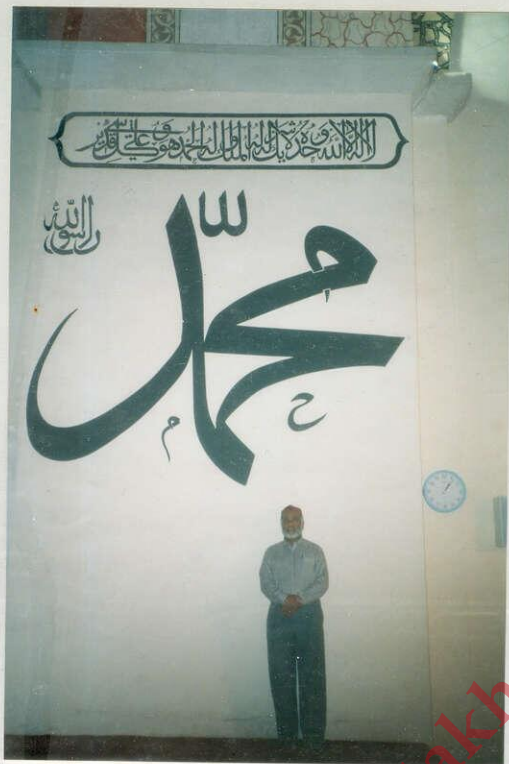 لا إله إلا الله وحده لا شريك له له الملك وله الحمد وهو على كل شيء قدير
رسول الله
محمد